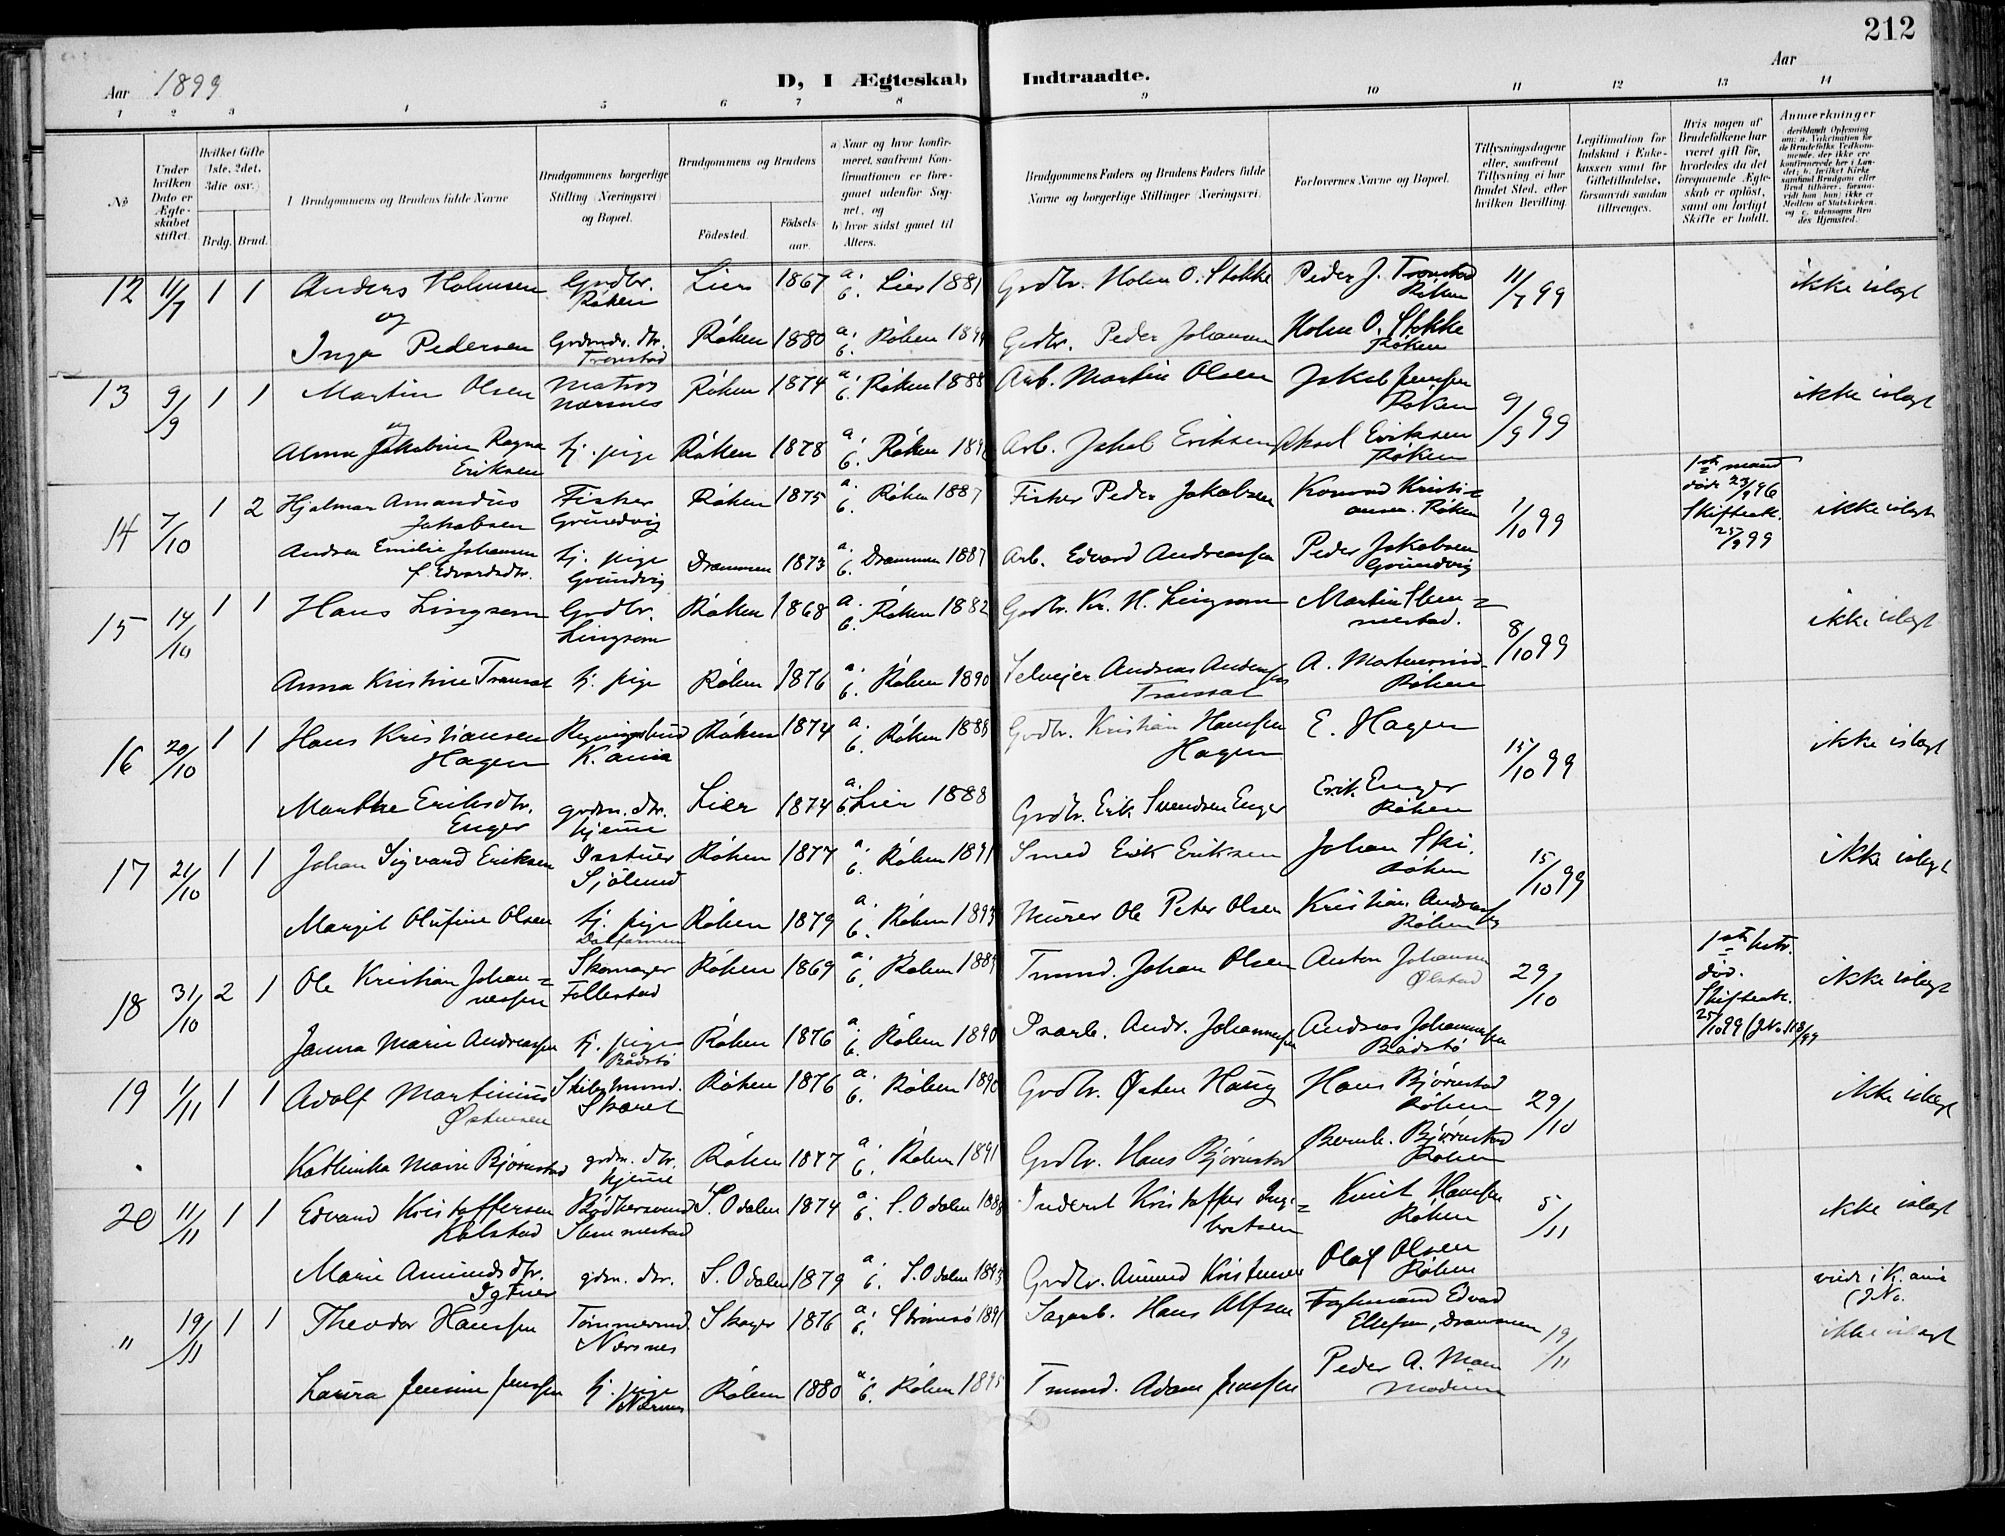 212
Aar 1899
D, I Ægteskab Indtraadte.
Aar
1 2 3 4 5 6 7 8 9 10 11 12 13 14
No
Under hvilken Dato er Ægteskabet stiftet.
Hvilket Gifte (1ste, 2det, 3die osv.)
Brdg. Brud.
Brudgommens og Brudens fulde Navne
Brudgommens borgerlige Stilling (Næringsvei) og Bopæl.
Brudgommens og Brudens
Fødested. Fødselsaar.
a) Naar og hvor konfirmeret, saafremt Konfirmationen er foregaaet udenfor Sognet, og
b) hvor sidst gaaet til Alters.
Brudgommens Faders og Brudens Faders fulde Navne og borgerlige Stillinger (Næringsvei).
Forlovernes Navne og Bopæl.
Tillysningsdagene eller, saafremt Tillysning ei har fundet Sted, efter hvilken Bevilling.
Legitimation for Indskud i Enkekassen samt for Giftetilladelse, forsaavidt saadan tiltrænges.
Hvis nogen af Brudefolkene har været gift før, hvorledes da det foregaaende Ægteskab er opløst, samt om lovligt Skifte er holdt.
Anmerkninger
12 11/7 1 1 Anders Holmsen Grdbr. Røken Lier 1867 a. b. Lier 1881 Grdbr. Holm O. Stokke Peder J. Tronstad Røken 11/7 99 ikke islægt
og
Inga Pedersen Grdmds. dtr. Tronstad Røken 1880 a. b. Røken Grdbr. Peder Johansen Holm O. Stokke Røken
13 9/9 1 1 Martin Olsen Matros Nærsnes Røken 1874 a. b. Røken 1888 Arb. Martin Olsen Jakob Jensen Røken 9/9 99 ikke islægt
og
Alma Jakobine Ragna Eriksen tj. pige Røken 1878 a. b. Røken Arb. Jakob Eriksen Aksel Eriksen Røken
14 7/10 1 2 Hjalmar Amandus Jakobsen Fisker Grundvig Røken 1875 a. b. Røken 1887 Fisker Peder Jakobsen Konrad Kristiansen. Røken 1/10 99 1ste mand død 23/9 96 Skifteatt. 25/9 99 ikke islægt
Andrea Emilie Johansen f. Edvardsdtr. tj. pige Grundvig Drammen 1873 a. b. Drammen 1887 Arb. Edvard Andreassen Peder Jakobsen Grundvig
15 14/10 1 1 Hans Lingsom Grdbr. Lingsom Røken 1868 a. b. Røken 1882 Grdbr. Kr. H. Lingsom Martin Slemmestad. 8/10 99 ikke islægt
Anna Kristine tj. pige Røken 1876 a. b. Røken 1890 Selvejer Andreas Andersen A. Røken
16 20/10 1 1 Hans Kristiansen Hagen K.ania Røken 1874 a. b. Røken 1888 Grdbr. Kristian Hansen Hagen E. Hagen 15/10 99 ikke islægt
Marthe Eriksdtr. Enger grdm. dtr. hjeme Lier 1874 a. b. Lier 1888 Grdbr. Erik Svendsen Enger Erik Enger Røken
17 21/10 1 1 Johan Sigvard Eriksen Sjölund Røken 1877 a. b. Røken 1891 Smed Erik Eriksen Johan Ski. Røken 15/10 99 ikke islægt
Margit Olufine Olsen tj. pige Røken 1879 a. b. Røken 1893 Murer Ole Peter Olsen Kristian Andreassen Røken
18 31/10 2 1 Ole Kristian Johannessen Skomager Follestad Røken 1869 a. b. Røken 1884 Tmmd. Johan Olsen Anton Johansen Ølstad 29/10 1ste hstr. død. Skifteatt. 25/10 99 (JNo ikke islægt
Janna Marie Andreassen tj. pige Bådstø Røken 1876 a. b. Røken 1890 Isarb. Andr. Johannessen Andreas Johannessen Bådstø
19 1/11 1 1 Adolf Martinius Østensen Skibstmmd. Skaret Røken 1876 a. b. Røken 1890 Grdbr. Østen Haug Hans Bjørnstad Røken 29/10 ikke islægt
Kathinka Marie Bjørnstad grdm. dtr. hjeme Røken 1877 a. b. Røken 1891 Grdbr. Hans Bjørnstad Bernh. Bjørnstad Røken
20 11/11 1 1 Edvard Kristoffersen Kolstad Bødkersvend Slemmestad S. Odalen 1874 a. b. S. Odalen 1888 Inderst Kristoffer Ingebretsen Knut Hansen Røken 5/11 ikke islægt
Marie Amundsdtr. gdm. dtr. S. Odalen 1879 a. b. S. Odalen 1893 Grdbr. Amund Kristensen Olaf Olsen Røken
" 19/11 1 1 Theodor Hanssen Tømmermd. Nærsnes Skoger 1876 a. b. Strømsø 1891 Sagarb. Hans Alfsen Edvard Ellefsen, Drammen 19/11 viede i K.ania (JNo. ikke islægt
Laura Jensine Jenssen tj. pige Nærsnes Røken 1880 a. b. Røken 1895 Tmmd. Adam Jenssen Peder A. Moen Modum